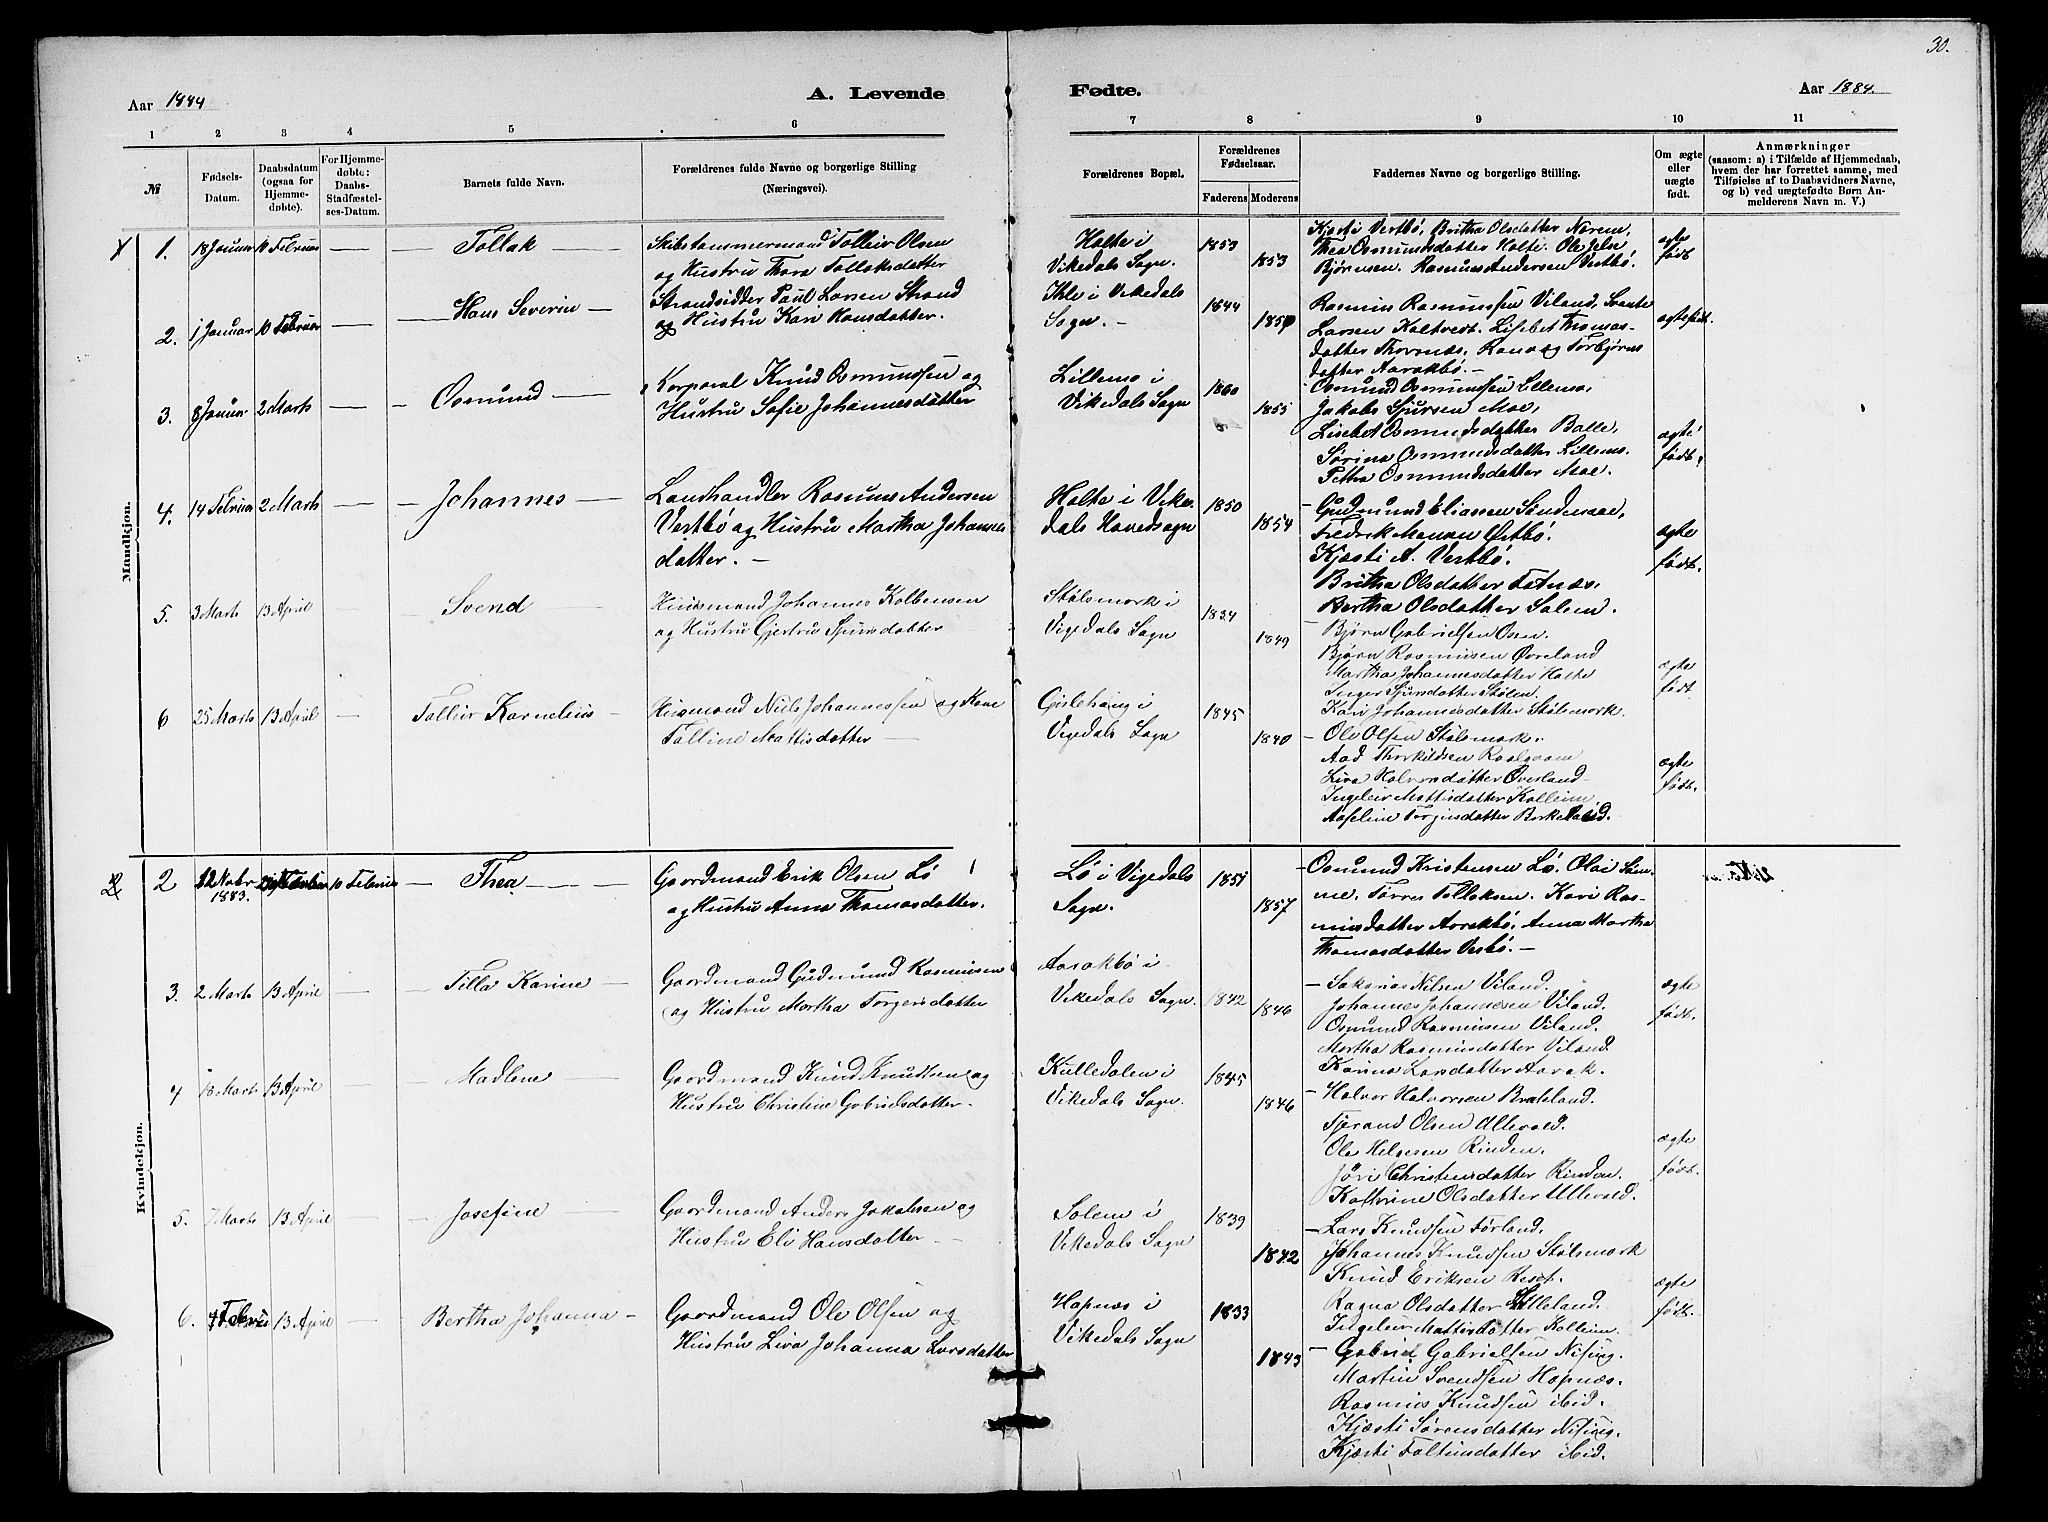 30.
Aar 1884
A. Levende
Fødte.
Aar 1884.
1 2 3 4 5 6 7 8 9 10 11
№
Fødsels-Datum.
Daabsdatum (ogsaa for Hjemmedøbte).
For Hjemmedøbte: Daabs-Stadfæstelses-Datum.
Barnets fulde Navn.
Forældrenes fulde Navne og borgerlige Stilling (Næringsvei).
Forældrenes Bopæl.
Forældrenes Fødselsaar.
Faderens Moderens
Faddernes Navne og borgerlige Stilling.
Om ægte eller uægte født.
Anmærkninger
(saasom: a) i Tilfælde af Hjemmedaab,
hvem der har forrettet samme, med
Tilføielse af to Daabsvidners Navne,
og b) ved uægtefødte Børn Anmelderens Navn m. V.)
Mandkjøn.
1. 18 Januar 10 Februar — Tollak —
Skibstømmermand Tolleiv Olsen
og Hustru Thora Tollaksdatter
Holte i
Vikedals Sogn.
1853 1853
Kjøsti Vestbø, Britha Olsdatter Norem,
Thea Osmundsdatter Holte. Ole
Bjørnsen. Rasmus Andersen Vestbø.
ægte
født
2. 1 Januar 10 Februar — Hans Severin —
Strandsidder Paul Larsen Strand
og Hustru Kari Hansdatter.
i Vikedals
Sogn. —
1844
Rasmus Rasmussen Viland, Svante
Larsen Holtvedt. Lisebet Thomas-
datter Thornæs. Torbjørns
datter Aarakbø. —
ægtefødt.
3. 8 Januar 2 Marts — Osmund —
Korporal Knud Osmundsen og
Hustru Sofie Johannesdatter
Lillemo i
Vikedals Sogn
1860 1855
Osmund Osmundsen Lillemo,
Jakob Sjursen Moe,
Lisebet Osmundsdatter Balle,
Sørina Osmundsdatter Lillemo.
Pethra Osmundsdatter Moe.
ægte
født.
4. 14 Februar 2 Marts — Johannes —
Landhandler Rasmus Andersen
Vestbø og Hustru Martha Johannes
datter. —
Holte i Vike-
dals Hovedsogn
1850 1854
— Gudmund Eliassen
Fredrik Østbø.
Kjæsti A. Vestbø.
Britha Olsdatter Fatnæs.
Bertha Olsdatter Solem.
ægte
født.
5. 3 Marts 13 April — Svend —
Huusmand Johannes Kolbensen
og Hustru Gjertru Sjursdatter
Stølsmork i
Vigedals Sogn
1834 1849
— Bjørn Gabrielsen Osen.
Bjørn Rasmussen Øvreland
Martha Johannesdatter Holte
Inger Sjursdatter Stølen.
Kari Johannesdatter Stølsmork.
ægte
født
6 25 Marts 13 April — Tolleiv Kornelius —
Huusmand Niels Johannessen og Kone
Talline Mattisdatter —
Gislehaug i
Vigedals Sogn
1845 1840
— Ole Olsen Stølsmark.
Aad Thorkildsen
Liva Halvorsdatter Øverland
Ingeleiv Mattisdatter Kolleim
Aaseline Torgersdatter Birkeland.
ægte
født.
Kvindekjøn.
2 12 Nobr 1883. 10 Februar — Thea —
Gaardmand Erik Olsen Lø
og Hustru Anna Thomasdatter.
Lø i Vigedals
Sogn.
1851 1857
— Osmund Kristensen Lø. Olai Sam-
me. Tørres Tollaksen. Kari Ras-
musdatter Aarakbø. Anna Martha
Thomasdatter Vesbø. —
3. 2 Marts 13 April — Tilla Karine —
Gaardmand Gudmund Rasmussen
og Hustru Martha Torgersdatter
Aarakbø i
Vikedals Sogn.
1842 1846
— Sakarias Nilsen Viland.
Johannes Johannesen Viland.
Osmund Rasmussen Viland.
Martha Rasmusdatter Viland.
Karina Larsdatter Aarak.
ægte
født.
4 18 Marts 13 April — Madlene —
Gaardmand Knud Knudsen og
Hustru Christine Gabrielsdatter.
Kulledalen i
Vikedals Sogn.
1845 1846
— Halvor Halvorsen Brækland.
Tjerand Olsen Ullevold.
Ole Helgesen Rinden.
Jøri Christensdatter Rinden.
Kathrine Olsdatter Ullevold.
ægte
født.
5. 7 Marts 13 April — Josefine —
Gaardmand Anders Jakobsen og
Hustru Eli Hansdatter —
Solem i
Vikedals Sogn
1839 1842
— Lars Knudsen Førland.
Johannes Knudsen Stølsmork
Knud Eriksen
Ragna Olsdatter Lilleland.
Ingeleiv Mattisdatter Kolleim.
ægte
født.
6. 13 April Bertha Johanna —
Gaardmand Ole Olsen og
Hustru Liva Johanna Larsdatter
Hapnæs i
Vikedals Sogn
1833 1843
— Gabriel Gabrielsen
Martin Svendsen Hapnæs.
Rasmus Knudsen ibid.
Kjæsti Sørensdatter
Kjæsti ibid.